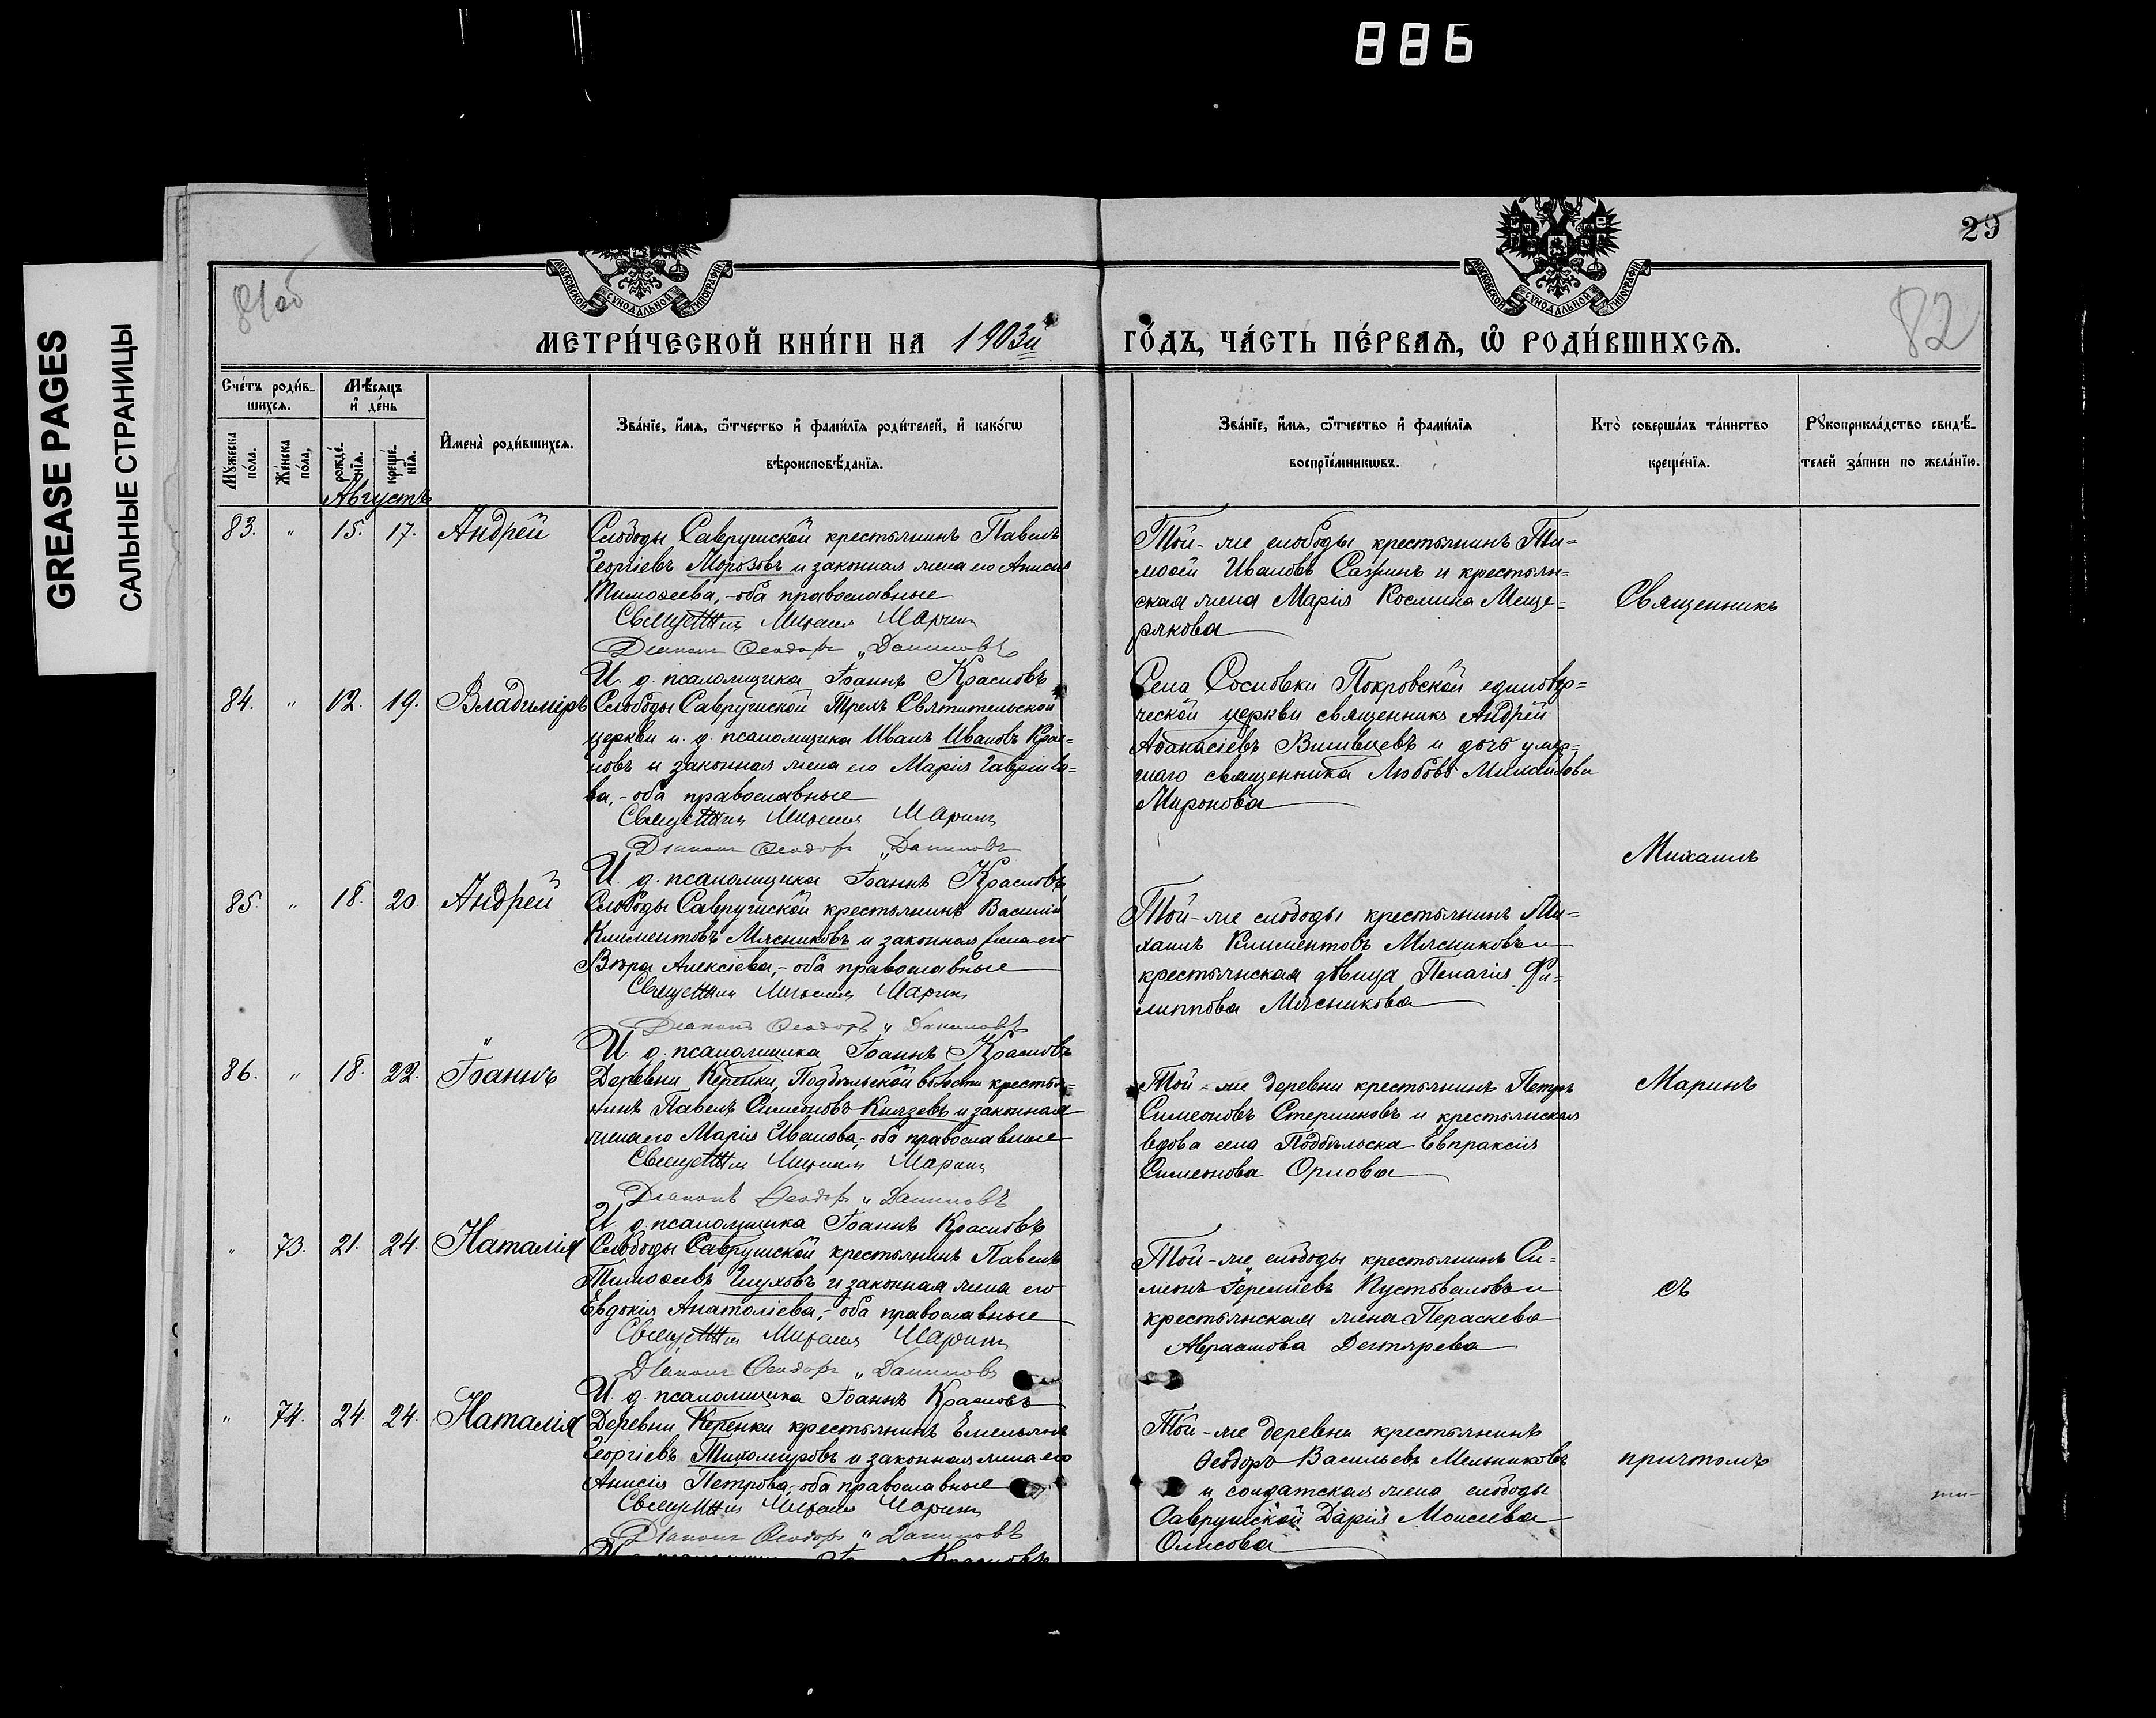 886
GREASE PAGES
САЛЬНЫЕ СТРАНИЦЫ
29
81об
82
МОСКОВСКОЙ СУНОДАЛЬНОЙ ТИПОГРАФІИ
МОСКОВСКОЙ СУНОДАЛЬНОЙ ТИПОГРАФІИ
МЕТРИ́ЧЕСКОЙ КНИ́ГИ НА 1903й ГО́ДЪ, ЧА́СТЬ ПЕ́РВАЯ, Ѡ РОДИ́ВШИХСЯ.
Сче́тъ роди́в-
шихся.
Мѣ́сяцъ
и де́нь
Мꙋ́жеска
по́ла.
Же́нска
по́ла,
рожде́-
нїя.
креще́-
нїя.
И҆мена̀ роди́вшихся.
Зва́нїе, и҆́мя, ѻ҆́тчество и҆ фами́лїя роди́телей, и҆ како́гѡ
вѣроисповѣ́данїя.
Зва́нїе, и҆́мя, ѻ҆́тчество и҆ фами́лїя
воспрїе́мникѡвъ.
Кто̀ соверша́лъ та́инство
креще́нїя.
Рꙋкоприкла́дство свидѣ́-
телей за́писи по жела́нїю.
Августъ
83. " 15. 17. Андрей
Слободы Саврушской крестьянинъ Павелъ
Георгіевъ Морозовъ и законная жена его Анисія
Тимоѳеева, - оба православные
Священникъ Михаилъ Маринъ
Діаконъ Ѳеодоръ Даниловъ
И. д. псаломщика Іоаннъ Красновъ
Той-же слободы крестьянинъ Ти-
моѳей Ивановъ Сазкинъ и крестьян-
ская жена Марія Космина Меще-
рякова
Священникъ
84. " 12. 19. Владиміръ
Слободы Саврушской Трехъ Святительской
церкви и. д. псаломщика Иванъ Ивановъ Крас-
новъ и законная жена его Марія Гавріило-
ва, - оба православные
Священникъ Михаилъ Маринъ
Діаконъ Ѳеодоръ Даниловъ
И. д. псаломщика Іоаннъ Красновъ
Села Сосновки Покровской единовѣр-
ческой церкви священникъ Андрей
Аѳанасіевъ и дочь умер-
шаго священника Любовь
Миронова
Михаилъ
85. " 18. 20. Андрей
Слободы Саврушской крестьянинъ Василій
Климентовъ Мясниковъ и законная жена его
Вѣра Алексіева, - оба православные
Священникъ Михаилъ Маринъ
Діаконъ Ѳеодоръ Даниловъ
И. д. псаломщика Іоаннъ Красновъ
Той-же слободы крестьянинъ Ми-
хаилъ Климентовъ Мясниковъ и
крестьянская дѣвица Пелагія Фи-
липпова Мясникова
86. " 18. 22. Іоаннъ
Деревни Керенки, Подбѣльской волости крестья-
нинъ Павелъ Симеоновъ Князевъ и законная
жена его Марія Иванова, - оба православные
Священникъ Михаилъ Маринъ
Діаконъ Ѳеодоръ Даниловъ
И. д. псаломщика Іоаннъ Красновъ
Той-же деревни крестьянинъ Петръ
Симеоновъ и крестьянская
вдова села Подбѣльска Евпраксія
Симеонова Орлова
Маринъ
" 73. 21. 24. Наталія
Слободы Саврушской крестьянинъ Павелъ
Тимоѳеевъ Глуховъ и законная жена его
Евдокія Анатоліева, - оба православные
Священникъ Михаилъ Маринъ
Діаконъ Ѳеодоръ Даниловъ
И. д. псаломщика Іоаннъ Красновъ
Той-же слободы крестьянинъ Си-
меонъ Іереміевъ Пустоваловъ и
крестьянская жена Параскева
Авраамова Дегтярева
съ
" 74. 24. 24. Наталія
Деревни Керенки крестьянинъ Емельянъ
Георгіевъ Тихомировъ и законная жена его
Анисія Петрова, - оба православные
Священникъ Михаилъ Маринъ
Діаконъ Ѳеодоръ Даниловъ
Той-же деревни крестьянинъ
Ѳеодоръ Васильевъ Мельниковъ
и солдатская жена слободы
Саврушской Дарія Моисеева
причтомъ